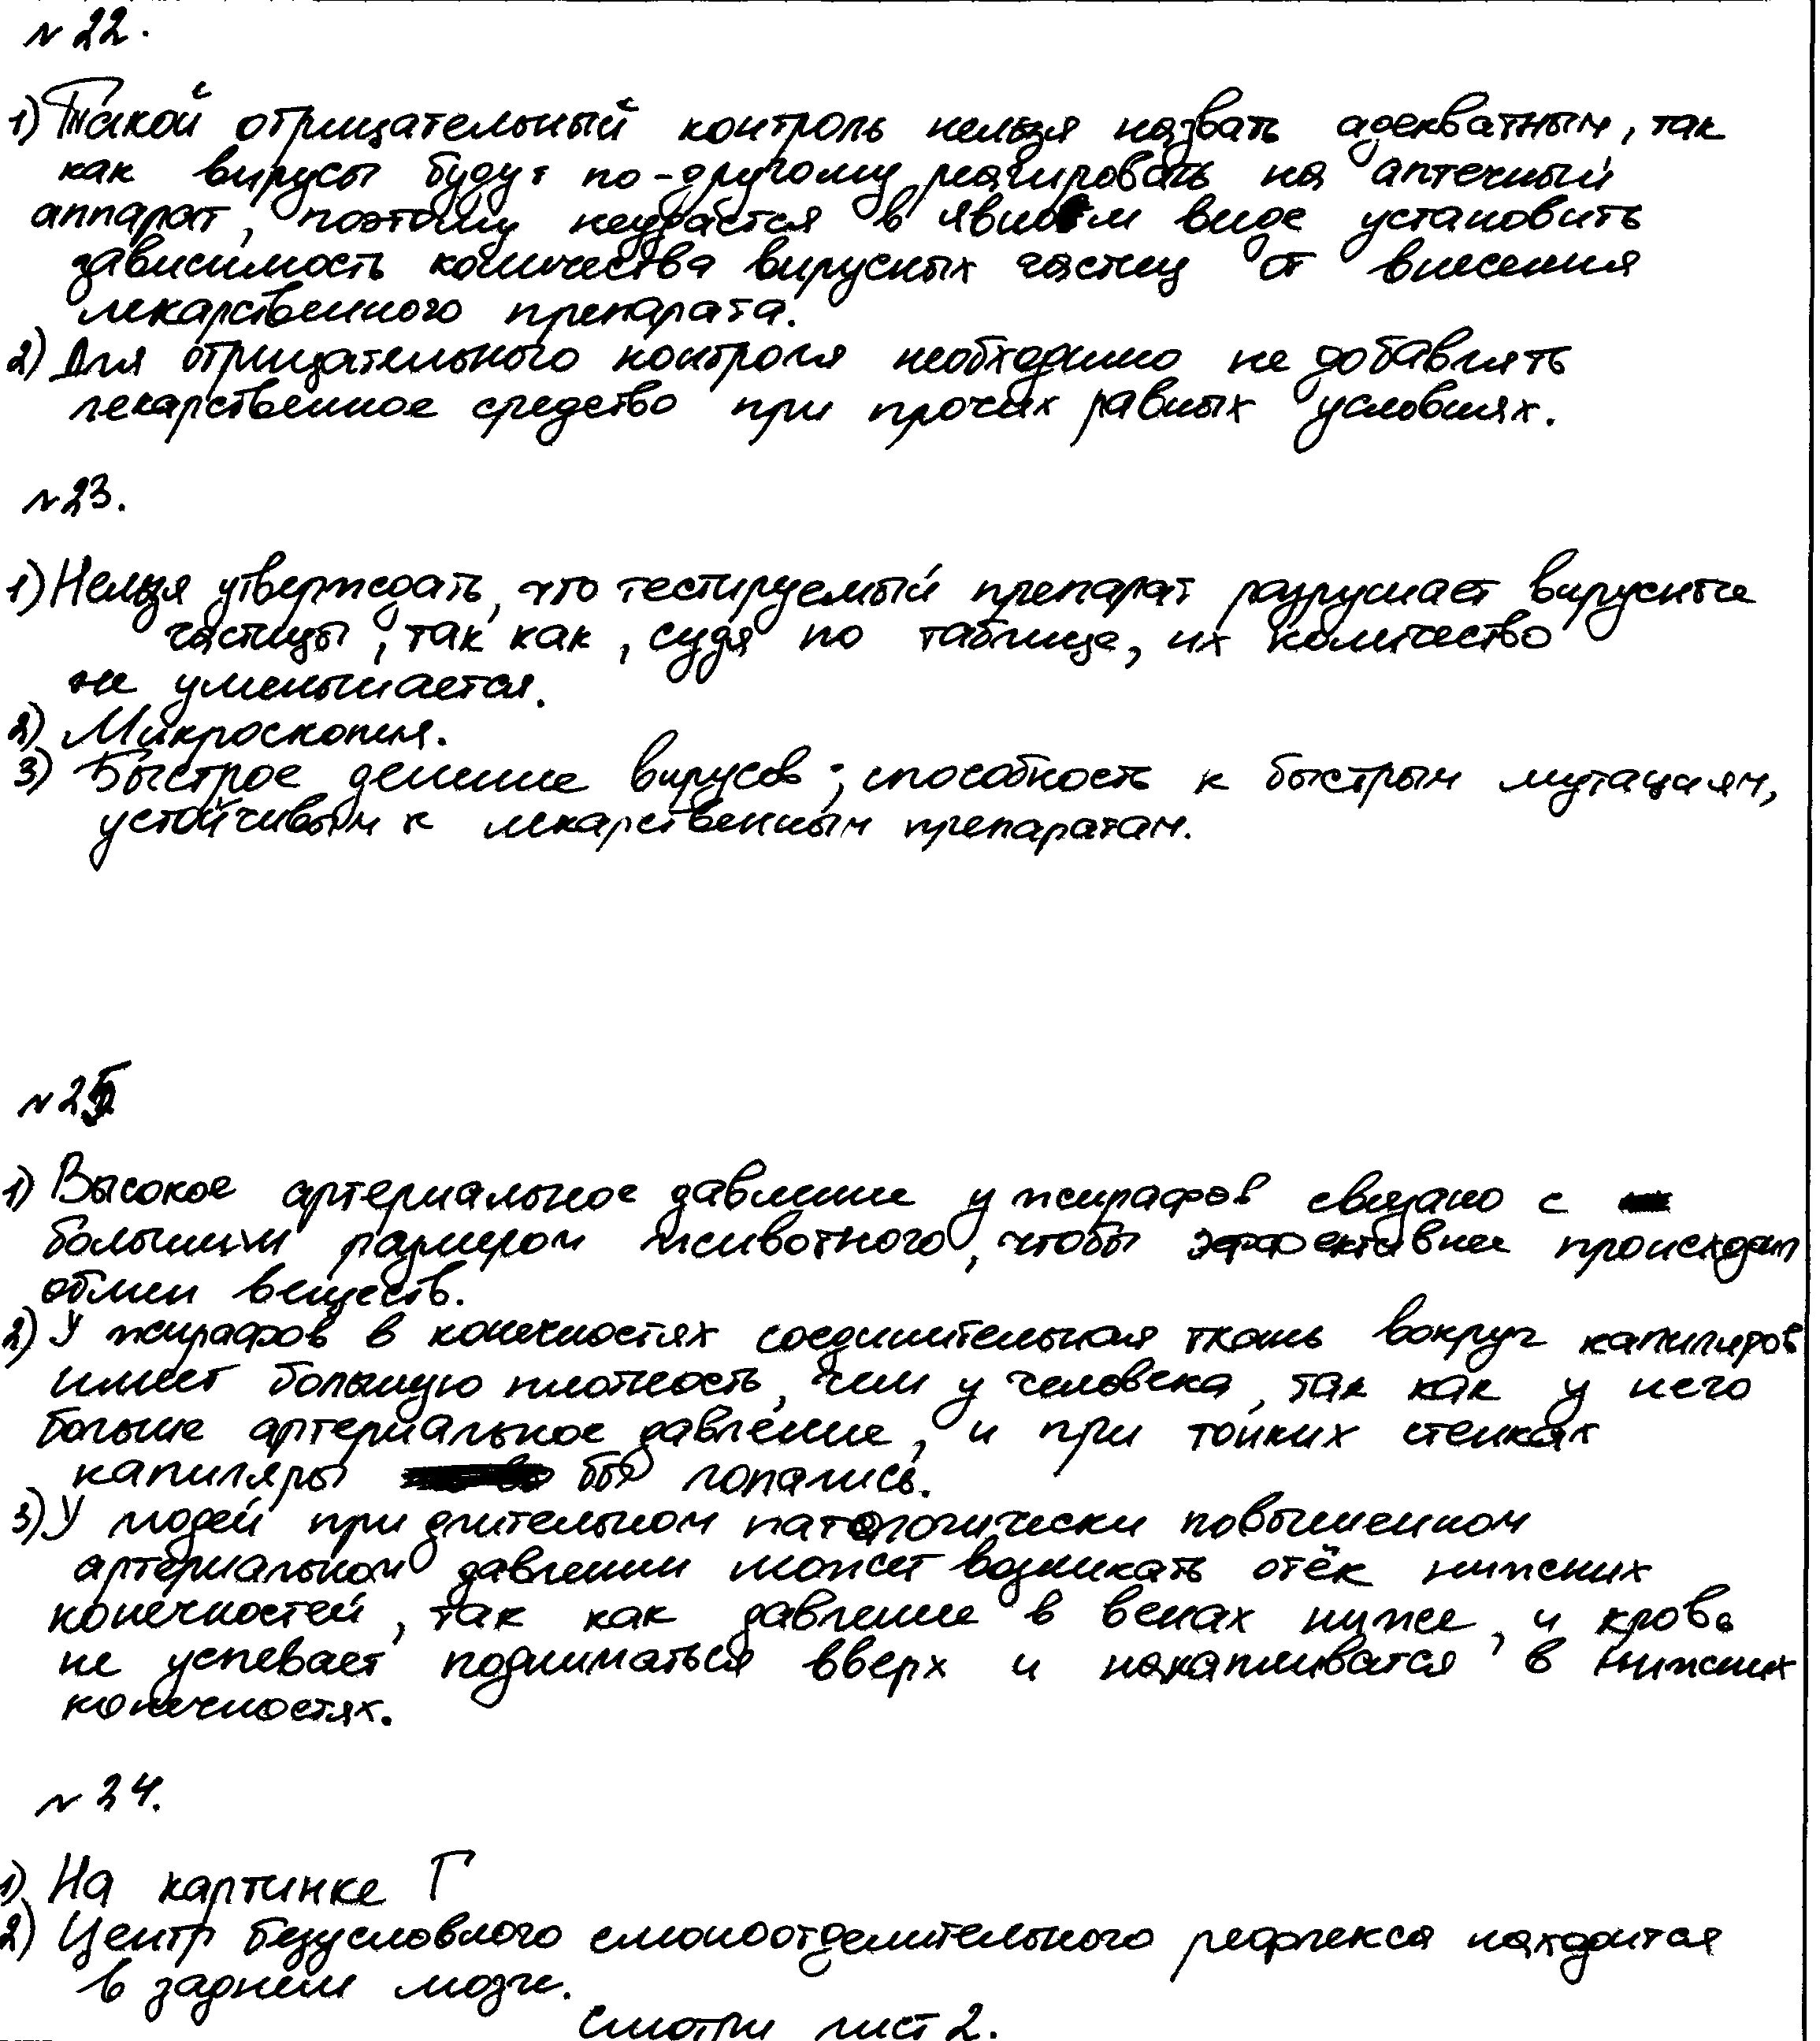 № 22.
1) Такой отрицательный контроль нельзя назвать адекватным, так
как вирусы будут по-другому реагировать на аптечный
аппарат, поэтому неудастся в явном виде установить
зависимость количества вирусных частиц от внесения
лекарственного препарата.
2) Для отрицательного контроля необходимо не добавлять
лекарственное средство при прочих равных условиях.
№ 23.
1) Нельзя утверждать, что тестируемый препарат разрушает вирусные
частицы, так как, судя по таблице, их количество
не уменьшается.
2) Микроскопия.
3) Быстрое деление вирусов; способность к быстрым мутациям,
устойчивым к лекарственным препаратам.
№ 25
1) Высокое артериальное давление у жирафов связано с
большим размером животного, чтобы эффективнее происходил
обмен веществ.
2) У жирафов в конечностях соединительная ткань вокруг капиляров
имеет большую плотность, чем у человека, так как у него
больше артериальное давление, и при тонких стенках
капиляры бы лопались.
3) У людей при длительном патологически повышенном
артериальном давлении может возникать отёк нижних
конечностей, так как давление в венах ниже, и кровь
не успевает подниматься вверх и накапливатся в нижних
конечностях.
№ 24.
1) На картинке Г
2) Центр безусловного слюноотделительного рефлекса находится
в заднем мозге.
Смотри лист 2.